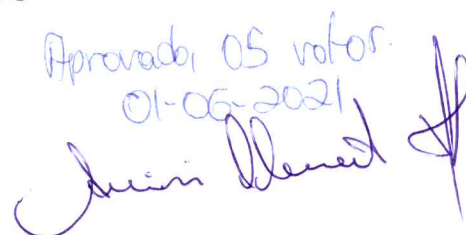 Aprovado, 05 votos.
01-06-2021